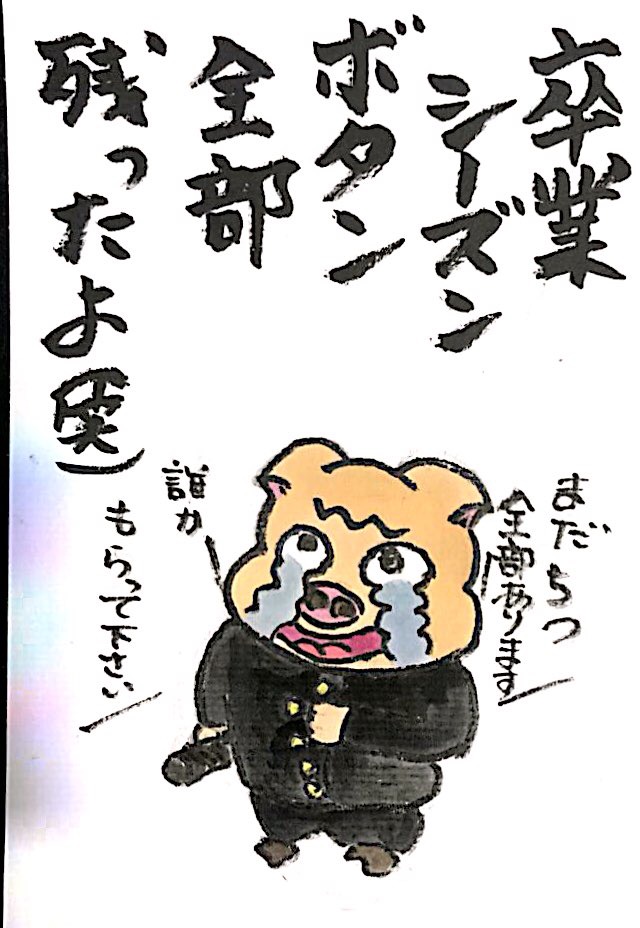 卒業
シーズン
ボタン
全部
残ったよ(笑)
まだ5つ
全部あります
誰か
もらって下さい